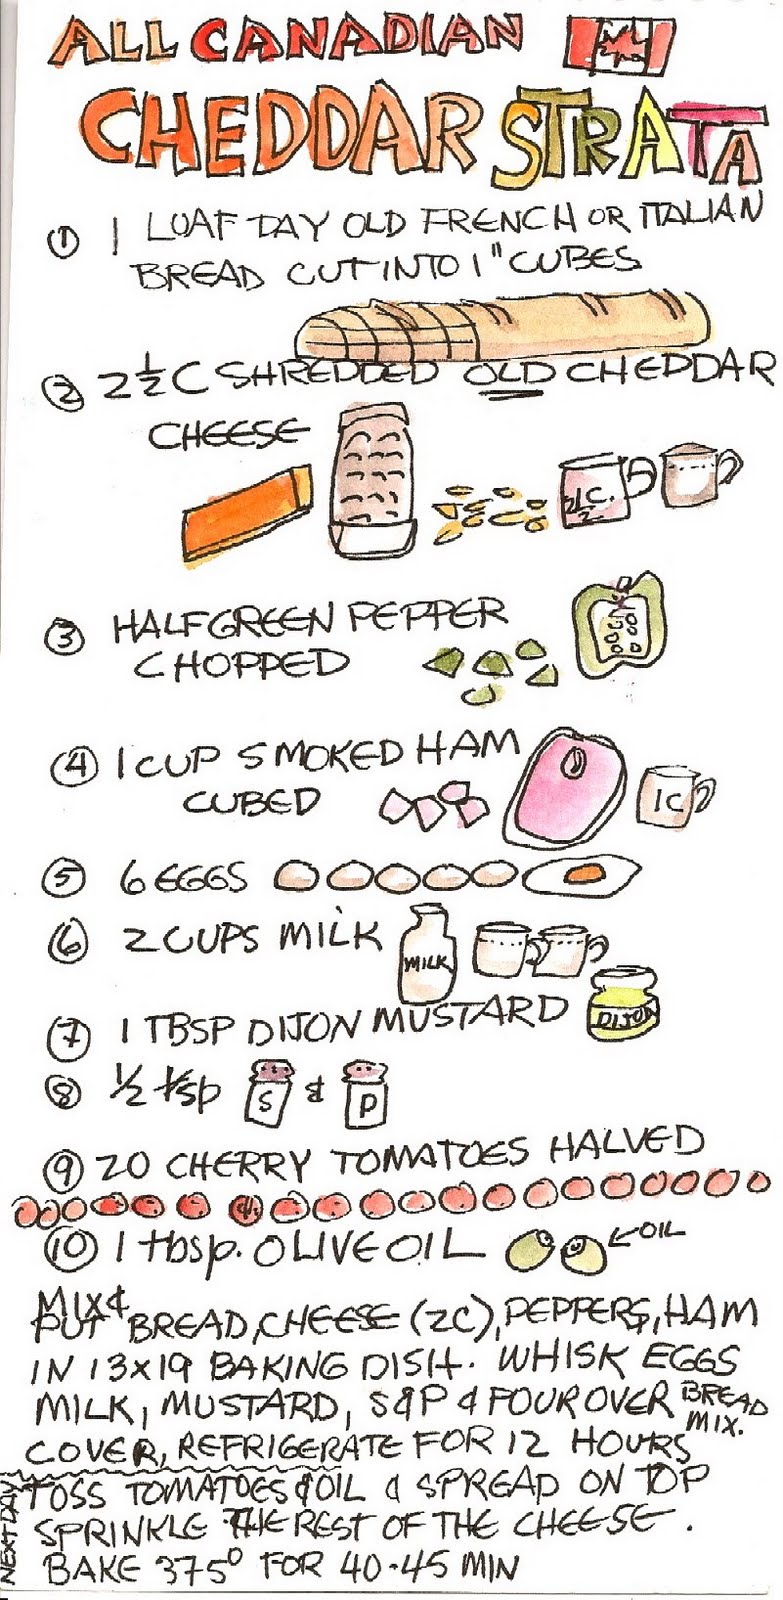 ALL CANADIAN
CHEDDAR STRATA
① 1 LOAF DAY OLD FRENCH OR ITALIAN
BREAD CUT INTO 1" CUBES
② 2 1/2 C SHREDDED OLD CHEDDAR
CHEESE
2 1/2 C.
③ HALF GREEN PEPPER
CHOPPED
④ 1 CUP SMOKED HAM
CUBED
1C
⑤ 6 EGGS
⑥ 2 CUPS MILK
MILK
⑦ 1 TBSP DIJON MUSTARD
DIJON
⑧ 1/2 tsp S & P
⑨ 20 CHERRY TOMATOES HALVED
⑩ 1 tbsp. OLIVE OIL ← OIL
MIX &
PUT BREAD, CHEESE (2C), PEPPERS, HAM
IN 13x19 BAKING DISH. WHISK EGGS
MILK, MUSTARD, S&P & POUR OVER BREAD
MIX.
COVER, REFRIGERATE FOR 12 HOURS
NEXT DAY
TOSS TOMATOES & OIL & SPREAD ON TOP
SPRINKLE THE REST OF THE CHEESE.
BAKE 375° FOR 40-45 MIN